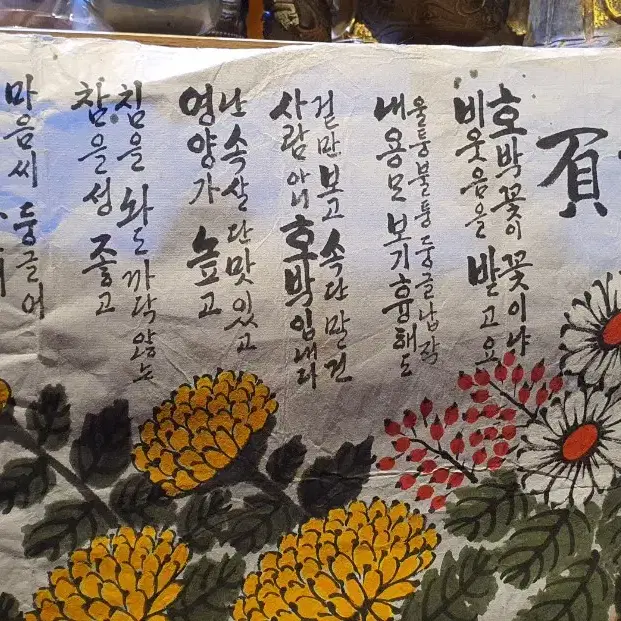 호박꽃이 꽃이냐
비웃음을 받고요
울퉁불퉁 둥글납작
내용모 보기흉해도
겉만보고 속단말건
사람아니 호박입내다
난 속살 단맛있고
영양가 높고
침을 놔도 까닥않는
참을성 좋고
마음씨 둥글어